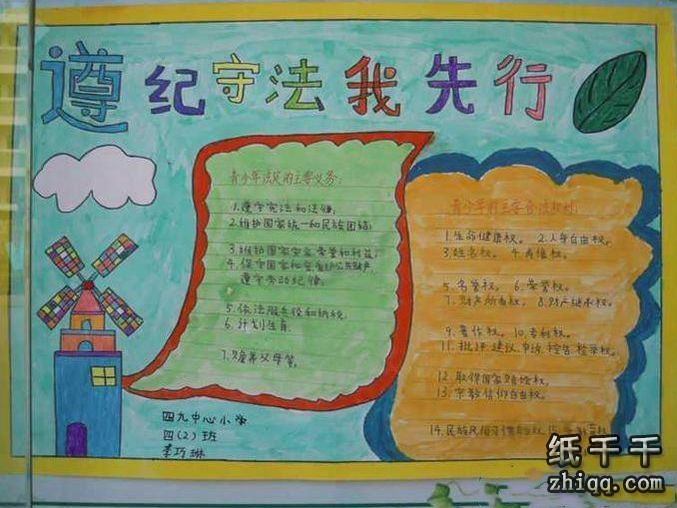 遵纪守法我先行
青少年法定的主要义务:
1.遵守宪法和法律;
2.维护国家统一和民族团结;
3.维护国家安全、荣誉和利益;
4.保守国家秘密,爱护公共财产,
遵守劳动纪律;
5.依法服兵役和纳税;
6.计划生育;
7.赡养父母等。
青少年的主要合法权利:
1.生命健康权。 2.人身自由权。
3.姓名权。 4.肖像权。
5.名誉权。 6.荣誉权。
7.财产所有权。 8.财产继承权。
9.著作权。 10.专利权。
11.批评.建议.申诉.控告.检举权。
12.取得国家赔偿权。
13.宗教信仰自由权。
14.民族风俗习惯自由权
四九中心小学
四(2)班
李巧琳
纸千千
zhiqq.com